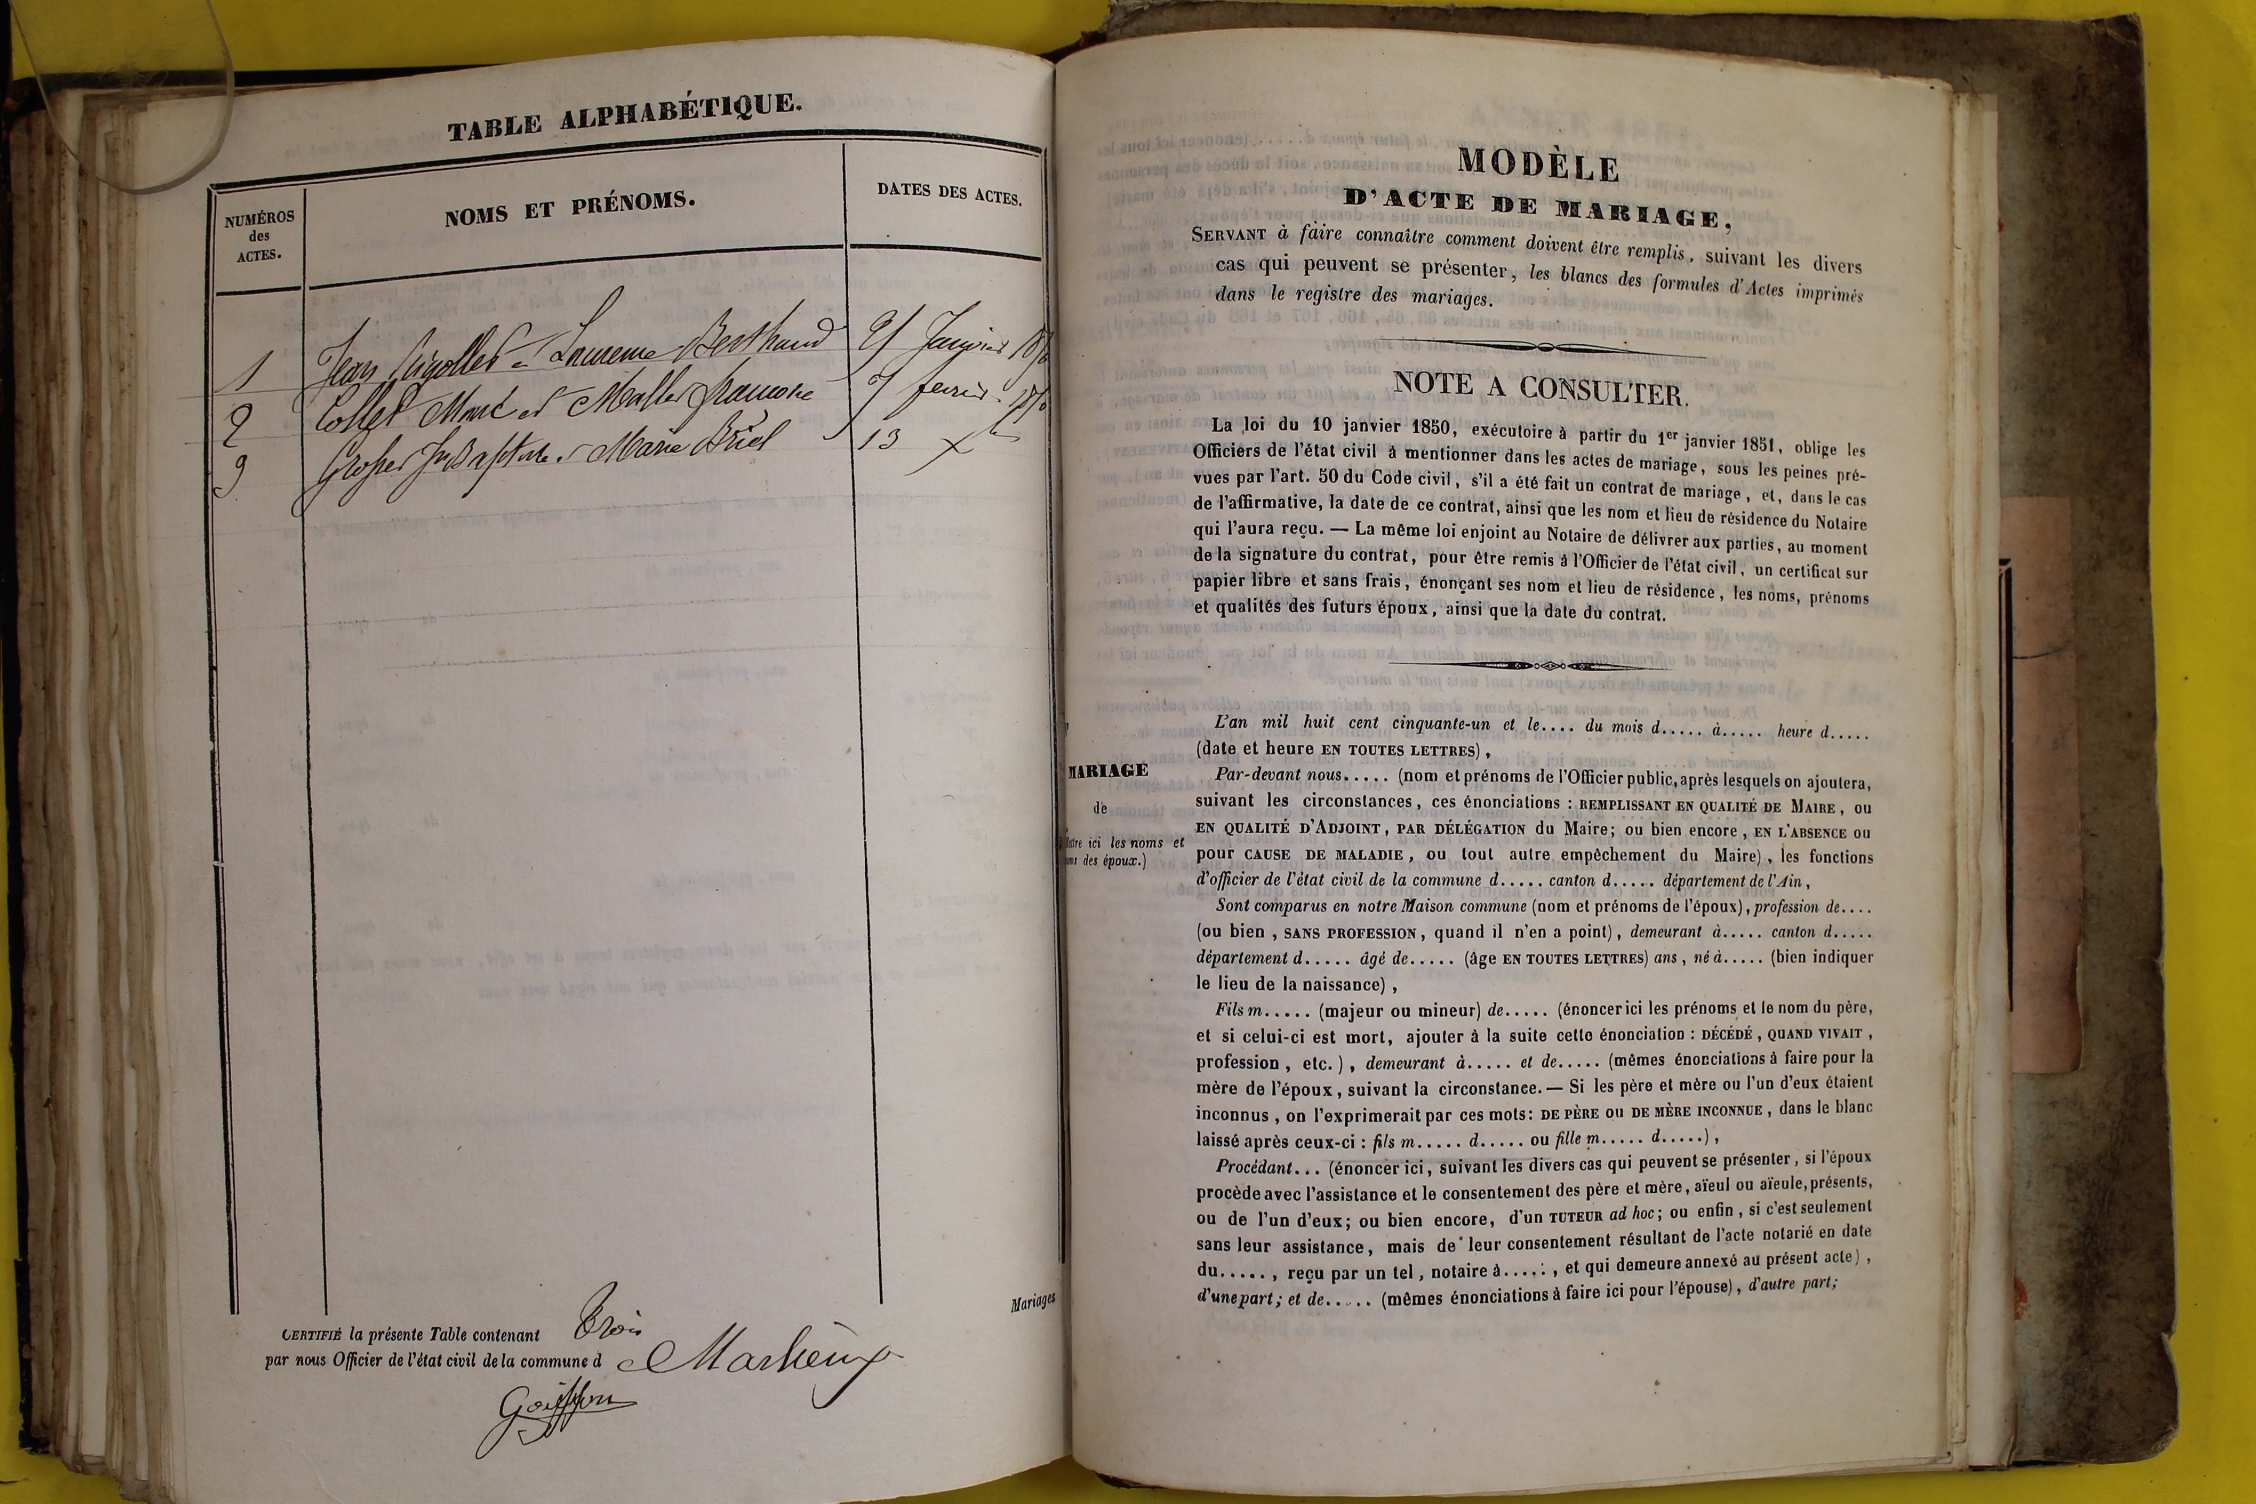 TABLE ALPHABÉTIQUE.
NUMÉROS
des
ACTES.
NOMS ET PRÉNOMS.
DATES DES ACTES.
1 Jean et Laurence Berthaud 21 Janvier
2 Collet Marc et francoise 7 fevrier
3 Jn Baptiste Marie 13 X
CERTIFIÉ la présente Table contenant trois
par nous Officier de l'état civil de la commune d Marlieux
Goiffon
Mariages
MODÈLE
D'ACTE DE MARIAGE,
SERVANT à faire connaître comment doivent être remplis, suivant les divers
cas qui peuvent se présenter, les blancs des formules d'Actes imprimés
dans le registre des mariages.
NOTE A CONSULTER.
La loi du 10 janvier 1850, exécutoire à partir du 1er janvier 1851, oblige les
Officiers de l'état civil à mentionner dans les actes de mariage, sous les peines pré-
vues par l'art. 50 du Code civil, s'il a été fait un contrat de mariage, et, dans le cas
de l'affirmative, la date de ce contrat, ainsi que les nom et lieu de résidence du Notaire
qui l'aura reçu. — La même loi enjoint au Notaire de délivrer aux parties, au moment
de la signature du contrat, pour être remis à l'Officier de l'état civil, un certificat sur
papier libre et sans frais, énonçant ses nom et lieu de résidence, les noms, prénoms
et qualités des futurs époux, ainsi que la date du contrat.
MARIAGE
de
ici les noms et
des époux.)
L'an mil huit cent cinquante-un et le.... du mois d..... à..... heure d.....
(date et heure EN TOUTES LETTRES),
Par-devant nous..... (nom et prénoms de l'Officier public, après lesquels on ajoutera,
suivant les circonstances, ces énonciations : REMPLISSANT EN QUALITÉ DE MAIRE, ou
EN QUALITÉ D'ADJOINT, PAR DÉLÉGATION du Maire; ou bien encore, EN L'ABSENCE ou
pour CAUSE DE MALADIE, ou tout autre empêchement du Maire), les fonctions
d'officier de l'état civil de la commune d..... canton d..... département de l'Ain,
Sont comparus en notre Maison commune (nom et prénoms de l'époux), profession de....
(ou bien, SANS PROFESSION, quand il n'en a point), demeurant à..... canton d.....
département d..... âgé de..... (âge EN TOUTES LETTRES) ans, né à..... (bien indiquer
le lieu de la naissance),
Fils m..... (majeur ou mineur) de..... (énoncer ici les prénoms et le nom du père,
et si celui-ci est mort, ajouter à la suite cette énonciation : DÉCÉDÉ, QUAND VIVAIT,
profession, etc.), demeurant à..... et de..... (mêmes énonciations à faire pour la
mère de l'époux, suivant la circonstance. — Si les père et mère ou l'un d'eux étaient
inconnus, on l'exprimerait par ces mots: DE PÈRE ou DE MÈRE INCONNUE, dans le blanc
laissé après ceux-ci : fils m..... d..... ou fille m..... d.....),
Procédant... (énoncer ici, suivant les divers cas qui peuvent se présenter, si l'époux
procède avec l'assistance et le consentement des père et mère, aïeul ou aïeule, présents,
ou de l'un d'eux; ou bien encore, d'un TUTEUR ad hoc; ou enfin, si c'est seulement
sans leur assistance, mais de leur consentement résultant de l'acte notarié en date
du....., reçu par un tel, notaire à....., et qui demeure annexé au présent acte),
d'une part; et de..... (mêmes énonciations à faire ici pour l'épouse), d'autre part;